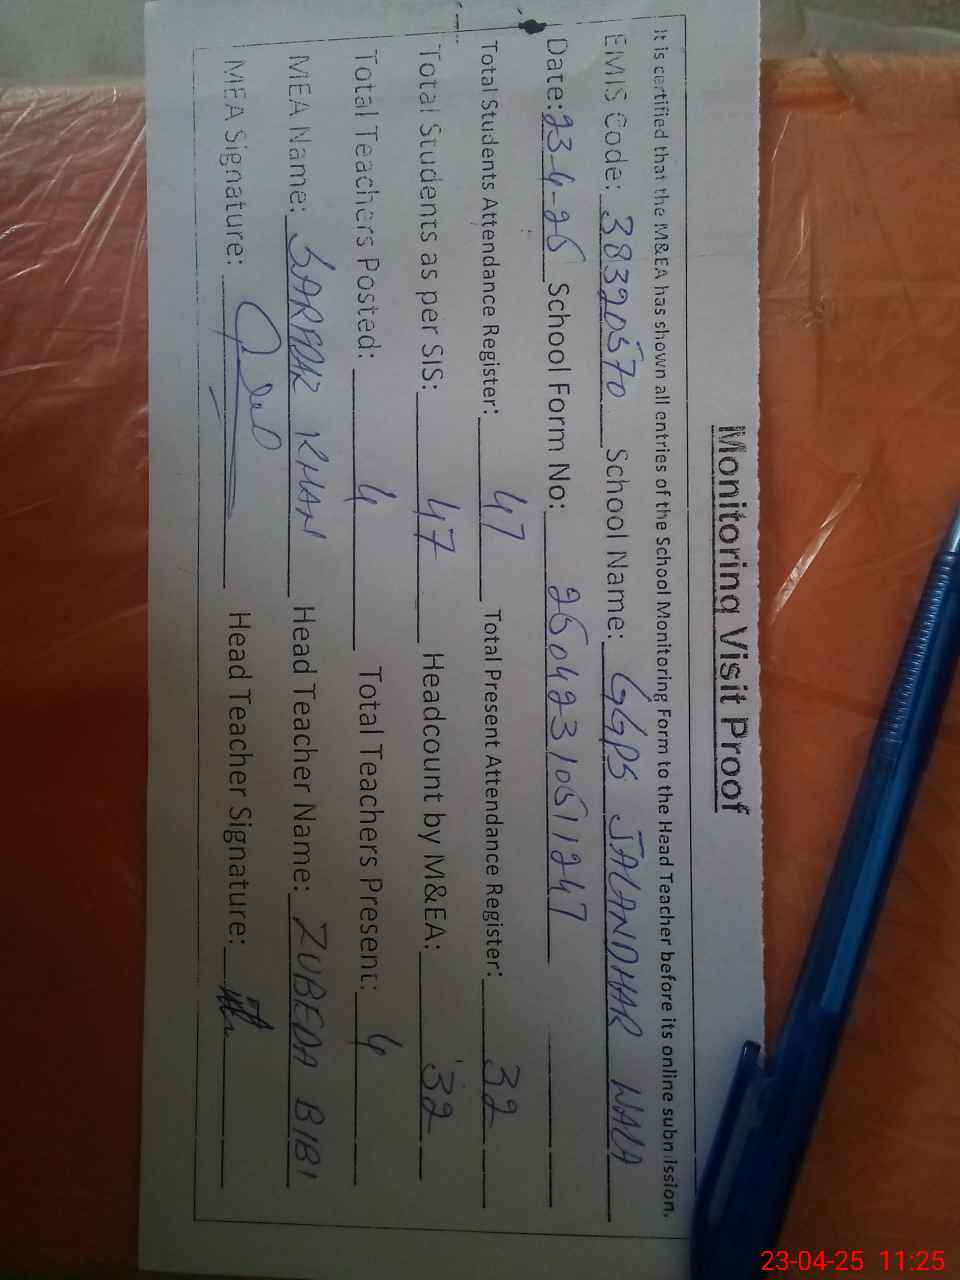 Monitoring Visit Proof
It is certified that the M&EA has shown all entries of the School Monitoring Form to the Head Teacher before its online submission.
EMIS Code: 38320570 School Name: GGPS JALANDHAR WALA
Date: 23-4-25 School Form No: 25042310511247
Total Students Attendance Register: 47 Total Present Attendance Register: 32
Total Students as per SIS: 47 Headcount by M&EA: 32
Total Teachers Posted: 4 Total Teachers Present: 4
MEA Name: SARADR KHAN Head Teacher Name: ZUBEDA BIBI
MEA Signature: Head Teacher Signature:
23-04-25 11:25